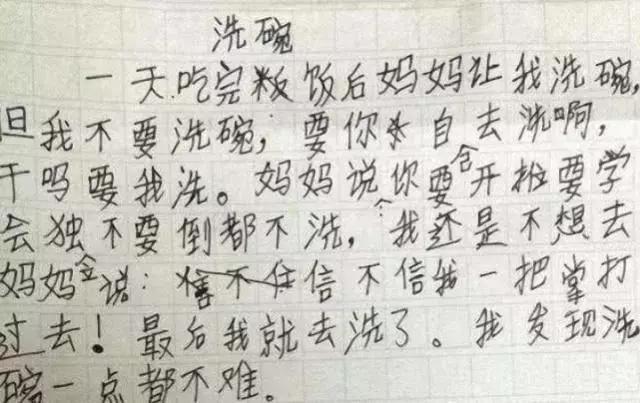 洗碗
一天吃完粄饭后妈妈让我洗碗,
但我不要洗碗,要你自去洗啊,
干吗要我洗。妈妈说你要开始要学
会独不要倒都不洗,我还是不想去
妈妈说:信不信我一把掌打
过去!最后我就去洗了。我发现洗
碗一点都不难。